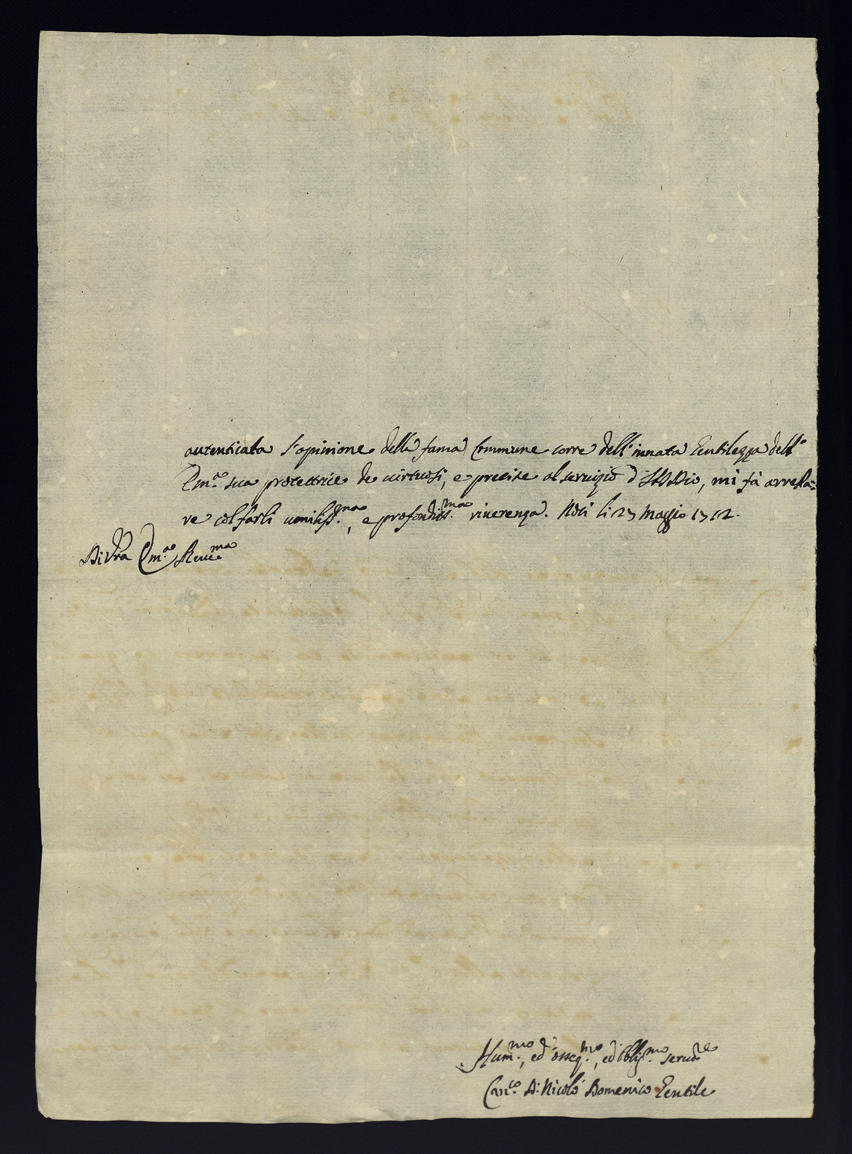 autenticata l'opinione della fama commune corre dell'innata Gentilezza dell'
Em.ª sua protettrice de virtuosi, e precise al servigio d'Iddio, mi fà arresta=
re col farli umiliss.ma, e profondiss.ma riverenza. Noci li 27 Maggio 1712.
Di Vra Em.ª Reve.ma
Hum.mo, ed osseq.mo, ed obblig.mo serv.re
Can.co D. Nicolò Domenico Gentile